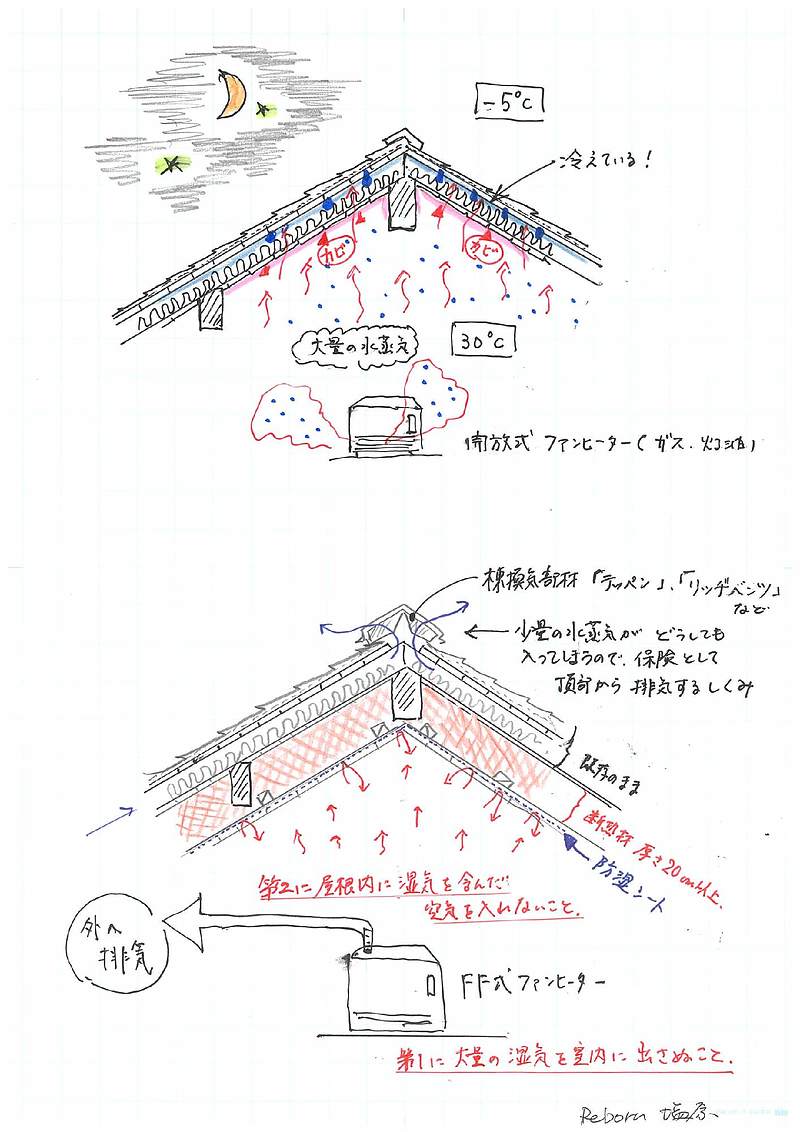 -5℃
冷えている!
カビ
カビ
大量の水蒸気
30℃
開放式 ファンヒーター(ガス.灯油)
棟換気部材「テッペン」、「リッヂベンツ」
など
少量の水蒸気が どうしても
入ってしまうので、保険として
頂部から 排気するしくみ
既存のまま
断熱材 厚さ20cm以上.
防湿シート
第2に屋根内に湿気を含んだ
空気を入れないこと.
外へ
排気
FF式ファンヒーター
第1に 大量の湿気を室内に 出さぬこと.
Reborn 塩原